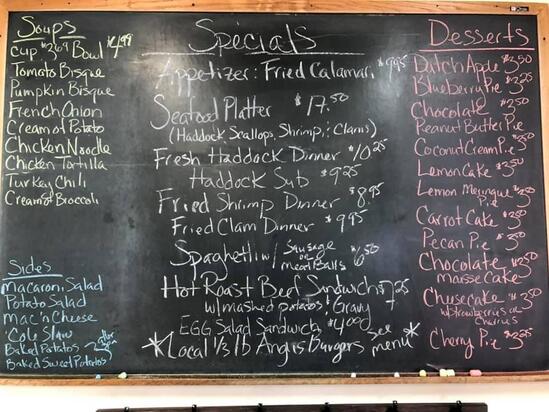 Soups
Cup $3.69 Bowl $4.99
Tomato Bisque
Pumpkin Bisque
French Onion
Cream of Potato
Chicken Noodle
Chicken Tortilla
Turkey Chili
Cream of Broccoli
Sides
Macaroni Salad
Potato Salad
Mac 'n Cheese
Cole Slaw
Baked Potatos
Baked Sweet Potatos
Specials
Appetizer: Fried Calamari $9.95
Seafood Platter $17.50
(Haddock Scallops, Shrimp, & Clams)
Fresh Haddock Dinner $10.25
Haddock Sub $9.25
Fried Shrimp Dinner $8.95
Fried Clam Dinner $9.95
Spaghetti w/ Sausage or Meat Balls $6.50
Hot Roast Beef Sandwich $7.25
w/ mashed potatos & Gravy
EGG Salad Sandwich $4.00
*Local 1/3 lb Angus Burgers See menu*
Desserts
Dutch Apple $3.50
Blueberry Pie $3.25
Chocolate $3.50
Peanut Butter Pie
Coconut Cream Pie $3.50
Lemon Cake $3.50
Lemon Meringue Pie $3.50
Carrot Cake $3.50
Pecan Pie $3.50
Chocolate $3.50
Mousse Cake
Cheesecake $3.50
w/ Strawberries or
Cherries
Cherry Pie $3.25